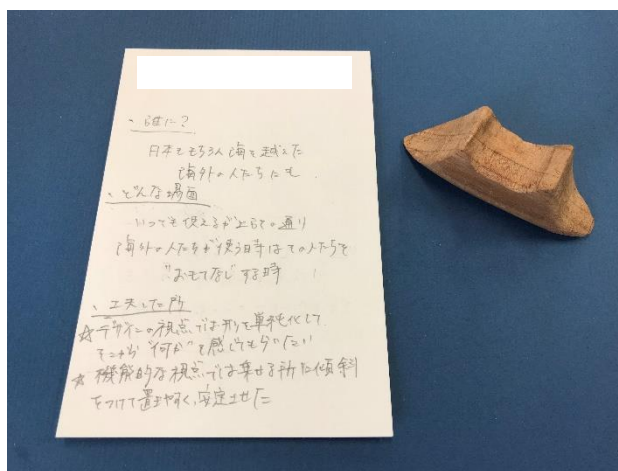 ・誰に？
日本をもちろん海を越えた
海外の人たちにも
・どんな場面
いつでも使えるが上記の通り
海外の人たちが使う時はその人たちを
"おもてなし"する時
・工夫した所
☆デザインの視点では形を単純化して
そこから"何か"を感じてもらいたい
☆機能的な視点では乗せる所に傾斜
をつけて置きやすく、安定させた